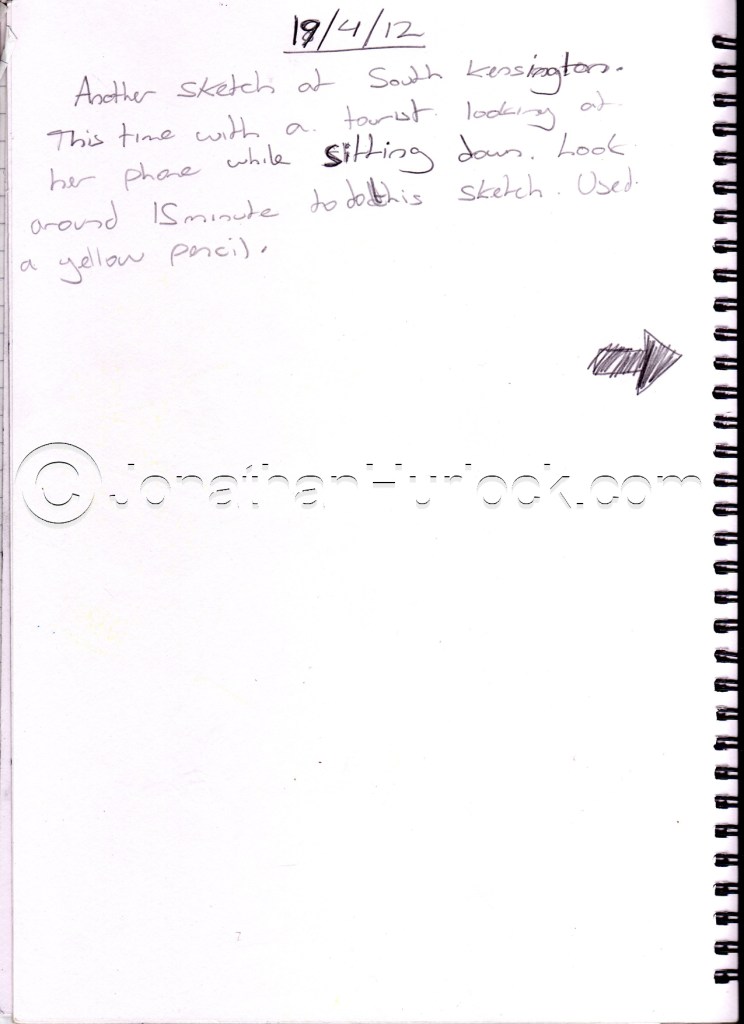 19/4/12
Another sketch at South Kensington.
This time with a tourist looking at
her phone while sitting down. Look
around 15 minute to do this sketch. Used
a yellow pencil.
© JonathanHurlock.com